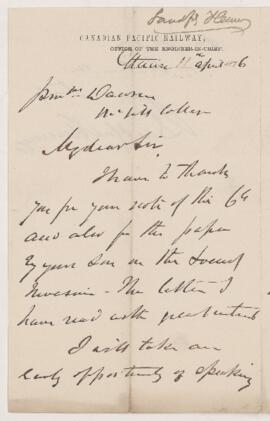 Sandf. Fleming
CANADIAN PACIFIC RAILWAY,
OFFICE OF THE ENGINEER-IN-CHIEF.
Ottawa 11th April 1876
Dawson
McGill College
My dear Sir
I have to thank
you for your note of the 6th
and also for the paper
by your Son on the Locust
Invasion - The latter I
have read with great interest
I will take an
early opportunity of speaking